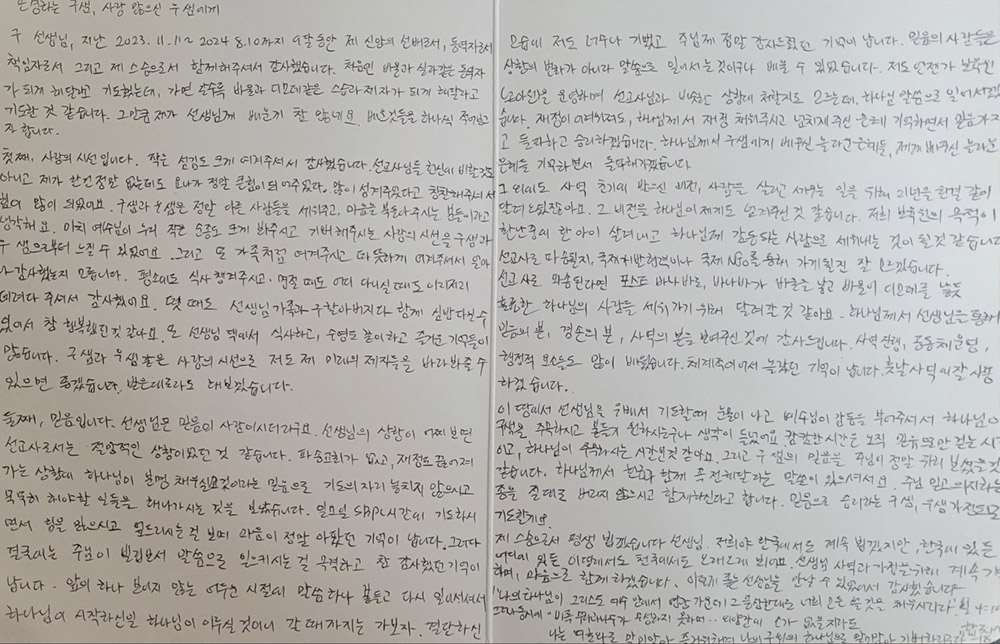 존경하는 구샘, 사랑 많으신 우샘에게
구 선생님, 지난 2023.11.11~2024.8.10까지 9개월 동안 제 신앙의 선배로서, 동역자로서
책임자로서 그리고 제 스승으로서 함께해주셔서 감사했습니다. 처음엔 바울과 실라같은 동역자
가 되게 해달라고 기도했는데, 가면 갈수록 바울과 디모데같은 스승과 제자가 되게 해달라고
기도한 것 같습니다. 그만큼 제가 선생님께 배운게 참 많네요. 배운것들을 하나씩
자 합니다.
첫째, 사랑의 시선입니다. 작은 섬김도 크게 여겨주셔서 감사했습니다. 선교사님들 한분이
아니고 제가 한건 정말 없는데도 요나가 정말 큰힘이 되어주었다. 많이 섬겨주었다고 칭찬해주셔서
힘이 많이 되었어요. 구샘과 우샘은 정말 다른 사람들을 세워주고, 마음을 북돋아주시는 분들이라고
생각해요. 마치 예수님이 우리 작은 순종도 크게 봐주시고 기뻐해주시는 사랑의 시선을 구샘과
우샘으로부터 느낄 수 있었어요. 그리고 또 가족처럼 여겨주시고 따뜻하게 여겨주셔서 얼마
나 감사했는지 모릅니다. 평소에도 식사 챙겨주시고, 명절 때도 어디 다니실 때도 이리저리
데려다 주셔서 감사했어요. 몇 때도 선생님 가족과 할아버지댁 함께 심방다닐수
있어서 참 행복했던것 같아요. 또 선생님 댁에서 식사하고, 수영도 같이하고 즐거운 기억들이
많습니다. 구샘과 우샘 같은 사랑의 시선으로 저도 제 미래의 제자들을 바라봐줄 수
있으면 좋겠습니다. 받은대로라도 해보겠습니다.
둘째, 믿음입니다. 선생님은 믿음의 사람이시더라구요. 선생님의 상황이 어찌 보면
선교사로서는 절망적인 상황이었던 것 같습니다. 파송교회가 없고, 재정도 끊어져
가는 상황에 하나님이 분명 채우실것이라는 믿음으로 기도의 자리 놓치지 않으시고
묵묵히 해야할 일들을 해나가시는 것을 보았습니다. 일요일 시간에 기도하시
면서 힘을 잃으시고 엎드리시는 걸 보며 마음이 정말 아팠던 기억이 납니다. 그러다
결국에는 주님이 빌립보서 말씀으로 일으키시는 걸 목격하고 참 감사했던 기억이
납니다. 앞이 하나 보이지 않는 어두운 시절에 말씀 하나 붙들고 다시 일어서서
하나님이 시작하신일 하나님이 이루실것이니 갈 때까지는 가보자. 결단하신
모습에 저도 너무나 기쁘고 주님께 정말 감사드렸던 기억이 납니다. 믿음의 사람들은
상황의 변화가 아니라 말씀으로 일어서는 것이구나 배울 수 있었습니다. 저도 언젠가 보육원
(고아원)을 운영하며 선교사님과 비슷한 상황에 처할지도 모르는데, 하나님 말씀으로 일어서겠
습니다. 재정이 어려워져도, 하나님께서 재정 채워주시고 넘치게 주신 은혜 기억하면서 믿음가지
고 돌파하고 승리하겠습니다. 하나님께서 구샘에게 베푸신 놀라운 은혜들, 제게 베푸신 놀라운
은혜를 기억하면서 돌파해가겠습니다.
그 외에도 사역 초기에 받으신 비전, 사람을 살리고 세우는 일을 위해 21년을 한결 같이
달려오셨잖아요. 그 비전을 하나님이 제게도 넘겨주신 것 같습니다. 저희 보육원의 목적이
환난중에 한 아이 살려내고 하나님께 감동되는 사람으로 세워내는 것이 될것 같습니다
선교사로 다음될지, 국제개발협력이나 국제 NGO를 통해 가게될진 잘 모르겠습니다.
선교사로 파송된다면 포스트 바나바로, 바나바가 바울을 낳고 바울이 디모데를 낳듯
훌륭한 하나님의 사람을 세워가기 위해 달려갈 것 같아요. 하나님께서 선생님을 통해
믿음의 본, 경손의 본, 사역의 본을 보여주신 것에 감사드립니다. 사역 진행, 공동체 운영,
행정적 요소들도 많이 배웠습니다. 체계적이어서 놀랐던 기억이 납니다. 훗날 사역에 잘 사용
하겠습니다.
이 땅에서 선생님을 위해서 기도할때 눈물이 나고 예수님이 감동을 부어주셔서 하나님이
구샘을 주목하시고 붙들기 원하시는구나 생각이 들었어요. 캄캄한 시간은 오직 믿음으로만 걷는 시
이고, 하나님이 주목하시는 시간인것 같아요. 그리고 구 샘의 믿음을 주님이 정말 귀히 보셨을것
같습니다. 하나님께서 말씀이 있으셔서요. 주님 믿고 의지하는
종을 절대로 버리지 않으시고 함께하신다고 합니다. 믿음으로 승리하는 구샘, 우샘가정되길
기도할게요.
제 스승으로서 평생 뵙겠습니다 선생님. 저희야 한국에서도 계속 뵙겠지만, 한국에 있든
어디에 있든 이땅에서도 천국에서도 오래오래 뵈어요. 선생님 사역과 가정을 위해 계속 기
하며, 마음으로 함께하겠습니다. 이렇게 좋은 선생님을 만날 수 있어서 감사했습니다.
"나의 하나님이 그리스도 예수 안에서 영광 가운데 그 풍성한대로 너희 모든 쓸 것을 채우시리라" 빌 4:19
"비록 무화과나무가 무성하지 못하며 ... 외양간에 소가 없을지라도
나는 여호와로 말미암아 즐거워하며 나의 구원의 하나님으로 말미암아 기뻐하리로다